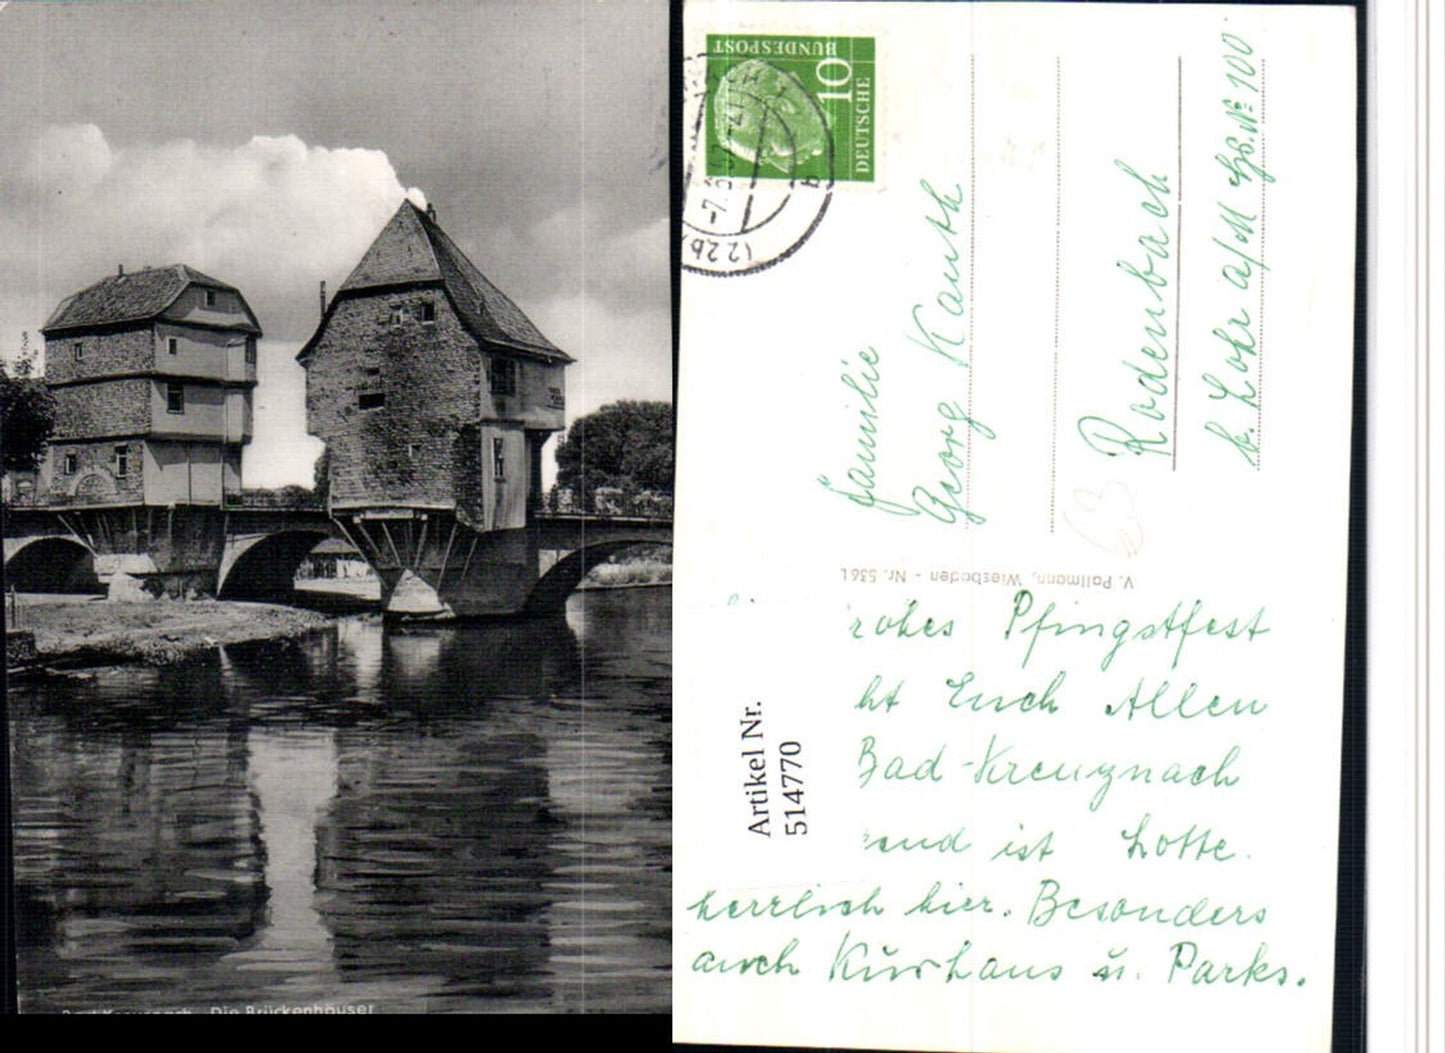 Bad Kreuznach - Die Brückenhäuser
DEUTSCHE
BUNDESPOST
10
(22b)
b
Familie
Georg Kauth
Rodenbach
b. Lohr a/M Hs. № 100
V. Pallmann, Wiesbaden - Nr. 5361
63
rohes Pfingstfest
ht Euch Allen
Bad-Kreuznach
end ist Lotte.
herrlich hier. Besonders
auch Kurhaus u. Parks.
Artikel Nr.
514770